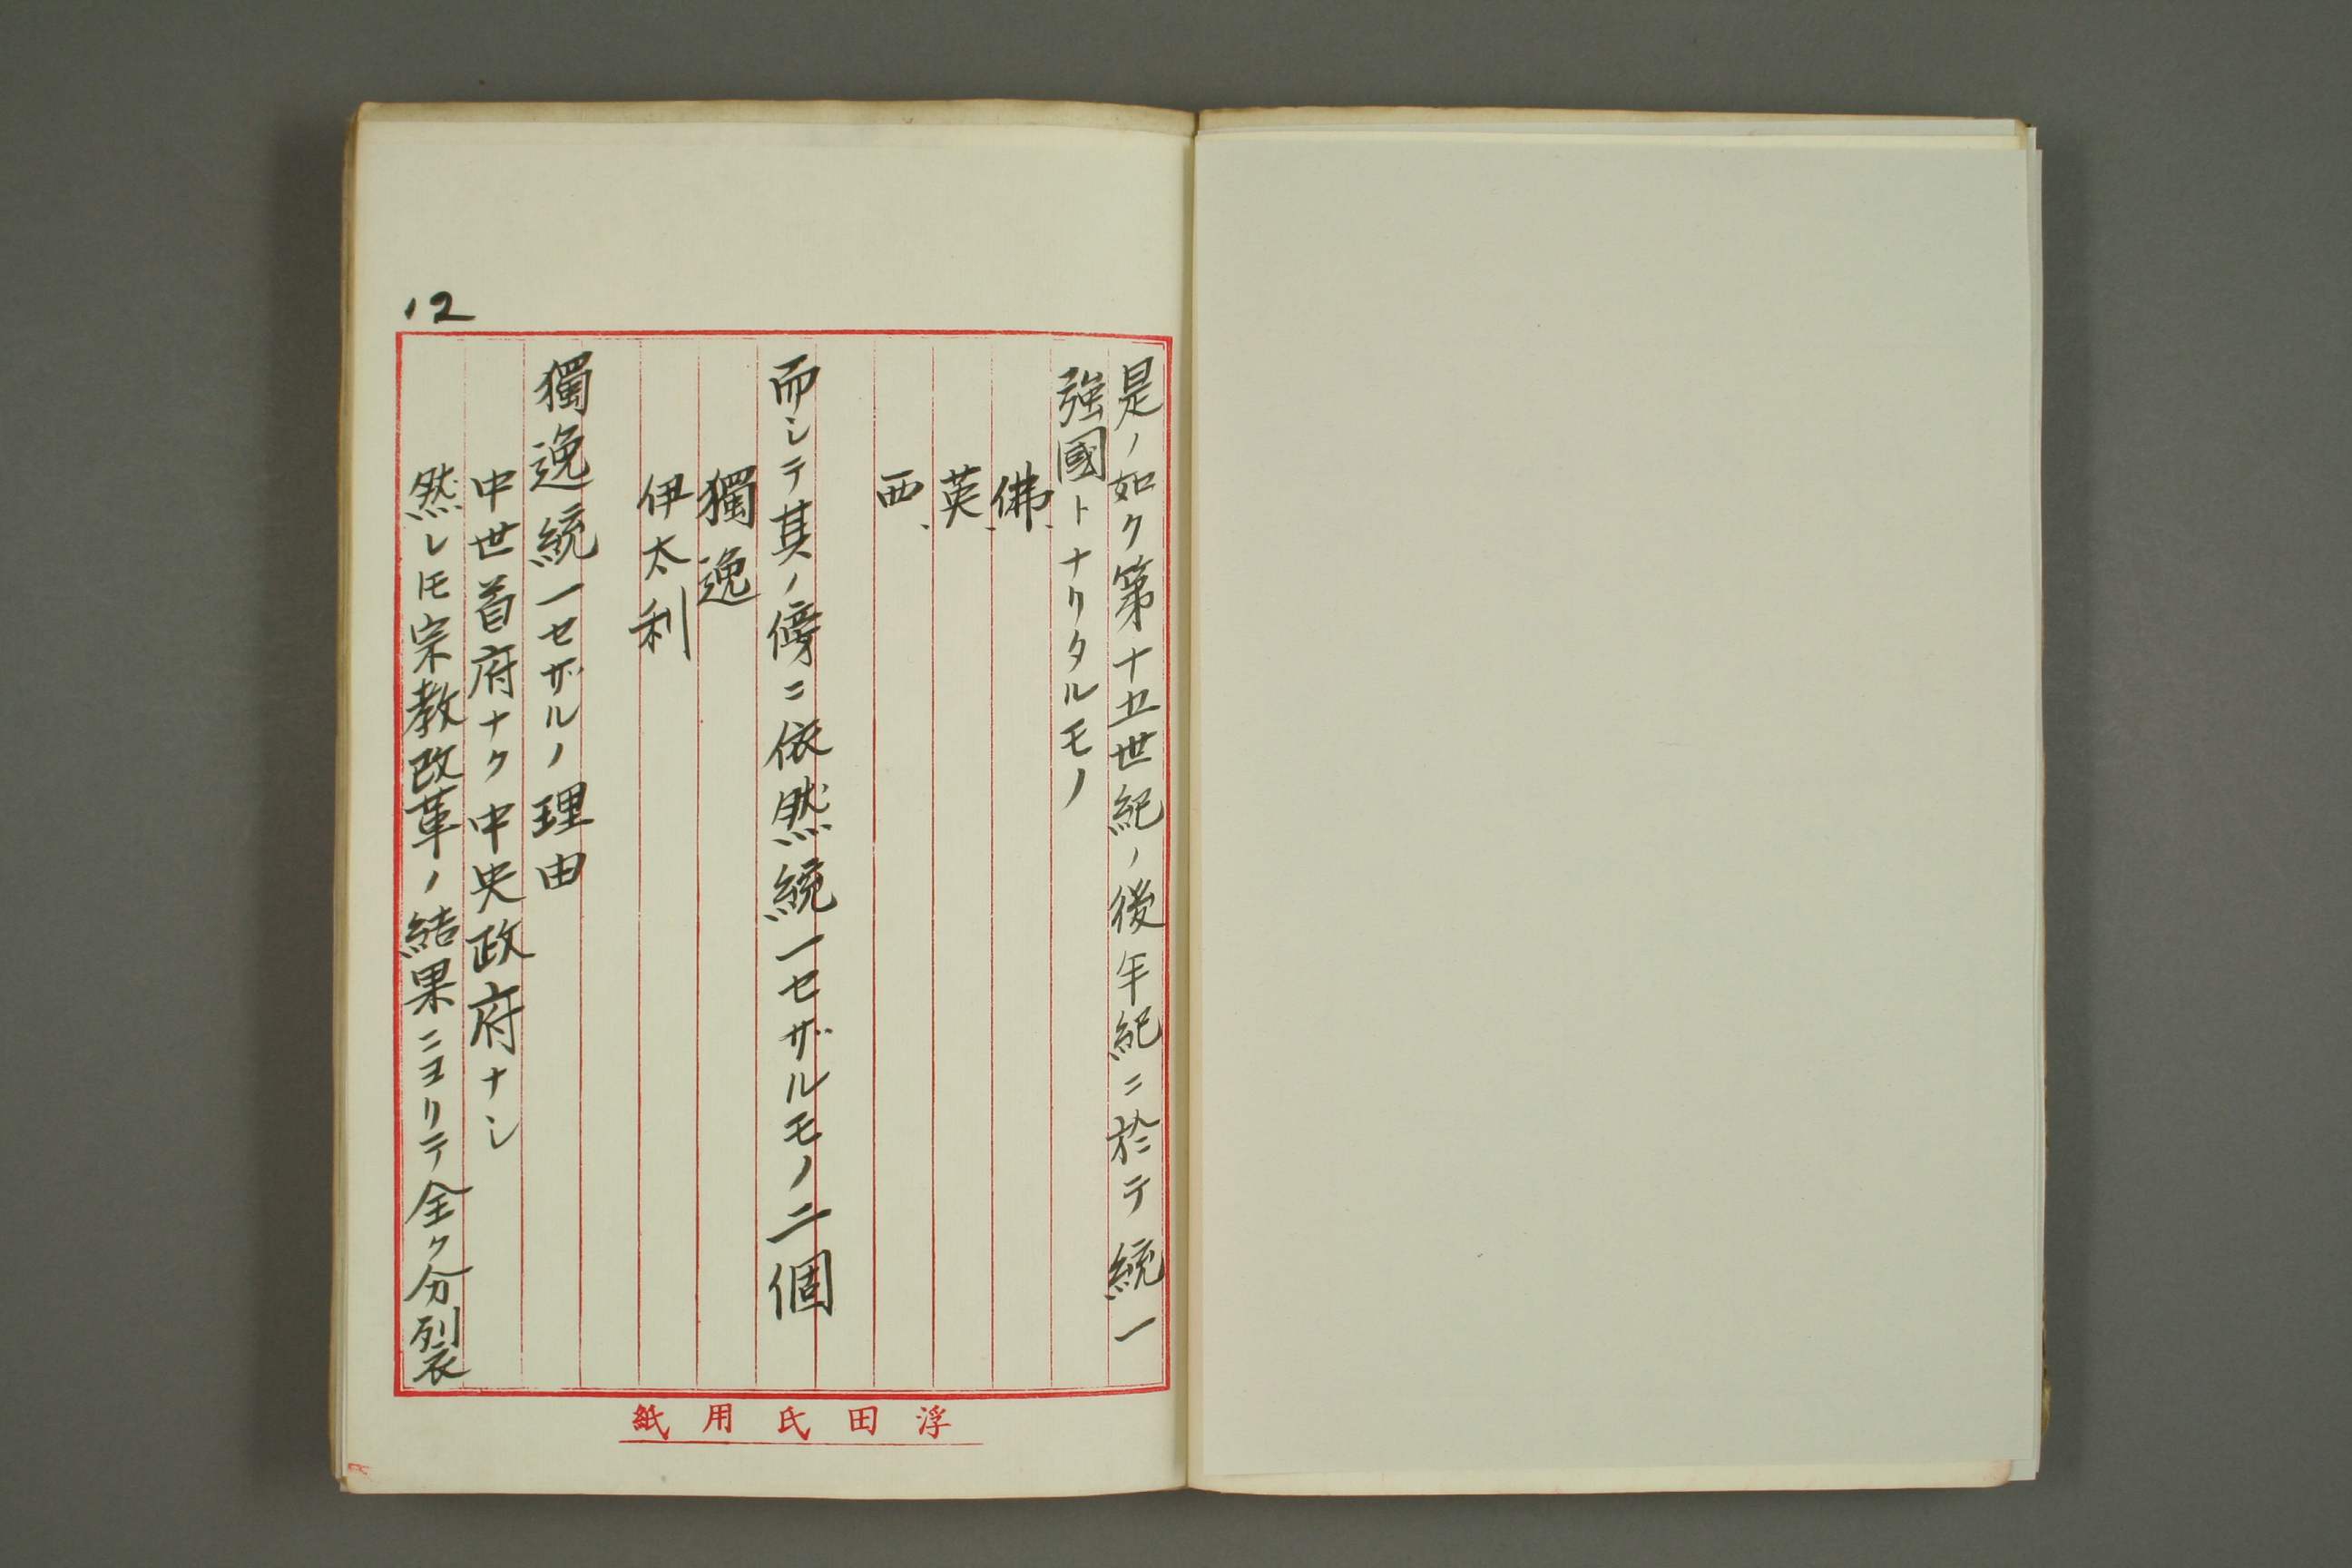 12
是ノ如ク第十五世紀ノ後年紀ニ於テ統一
強國トナリタルモノ
佛、
英、
西、
而シテ其ノ傍ニ依然統一セザルモノ二個
獨逸
伊太利
獨逸統一セザルノ理由
中世首府ナク中央政府ナシ
然レ𪜈宗教改革ノ結果ニヨリテ全ク分裂
浮田氏用紙